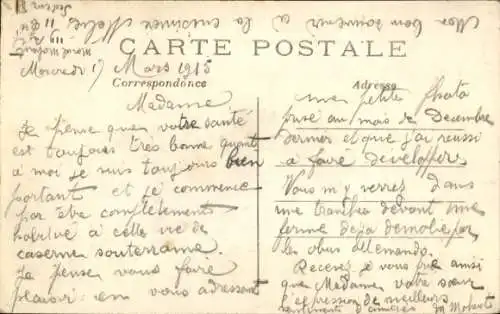 Mon bon souvenir à la cuisinière
CARTE POSTALE
Mercredi 17 Mars 1915
Correspondance
Adresse
Madame
Je pense que votre santé
est toujours très bonne quant
à moi je suis toujours bien
portant et je commence
par être complètement
habitué à cette vie de
caserne souterraine.
Je pense vous faire
plaisir en vous adressant
une petite Photo
prise au mois de Décembre
dernier et que j'ai réussi
à faire développer
Vous m'y verrez dans
une tranchée devant une
ferme déjà démolie par
les obus allemands.
Recevez je vous prie ainsi
que Madame votre sœur
l'expression de meilleurs
sentiments d'amitiés